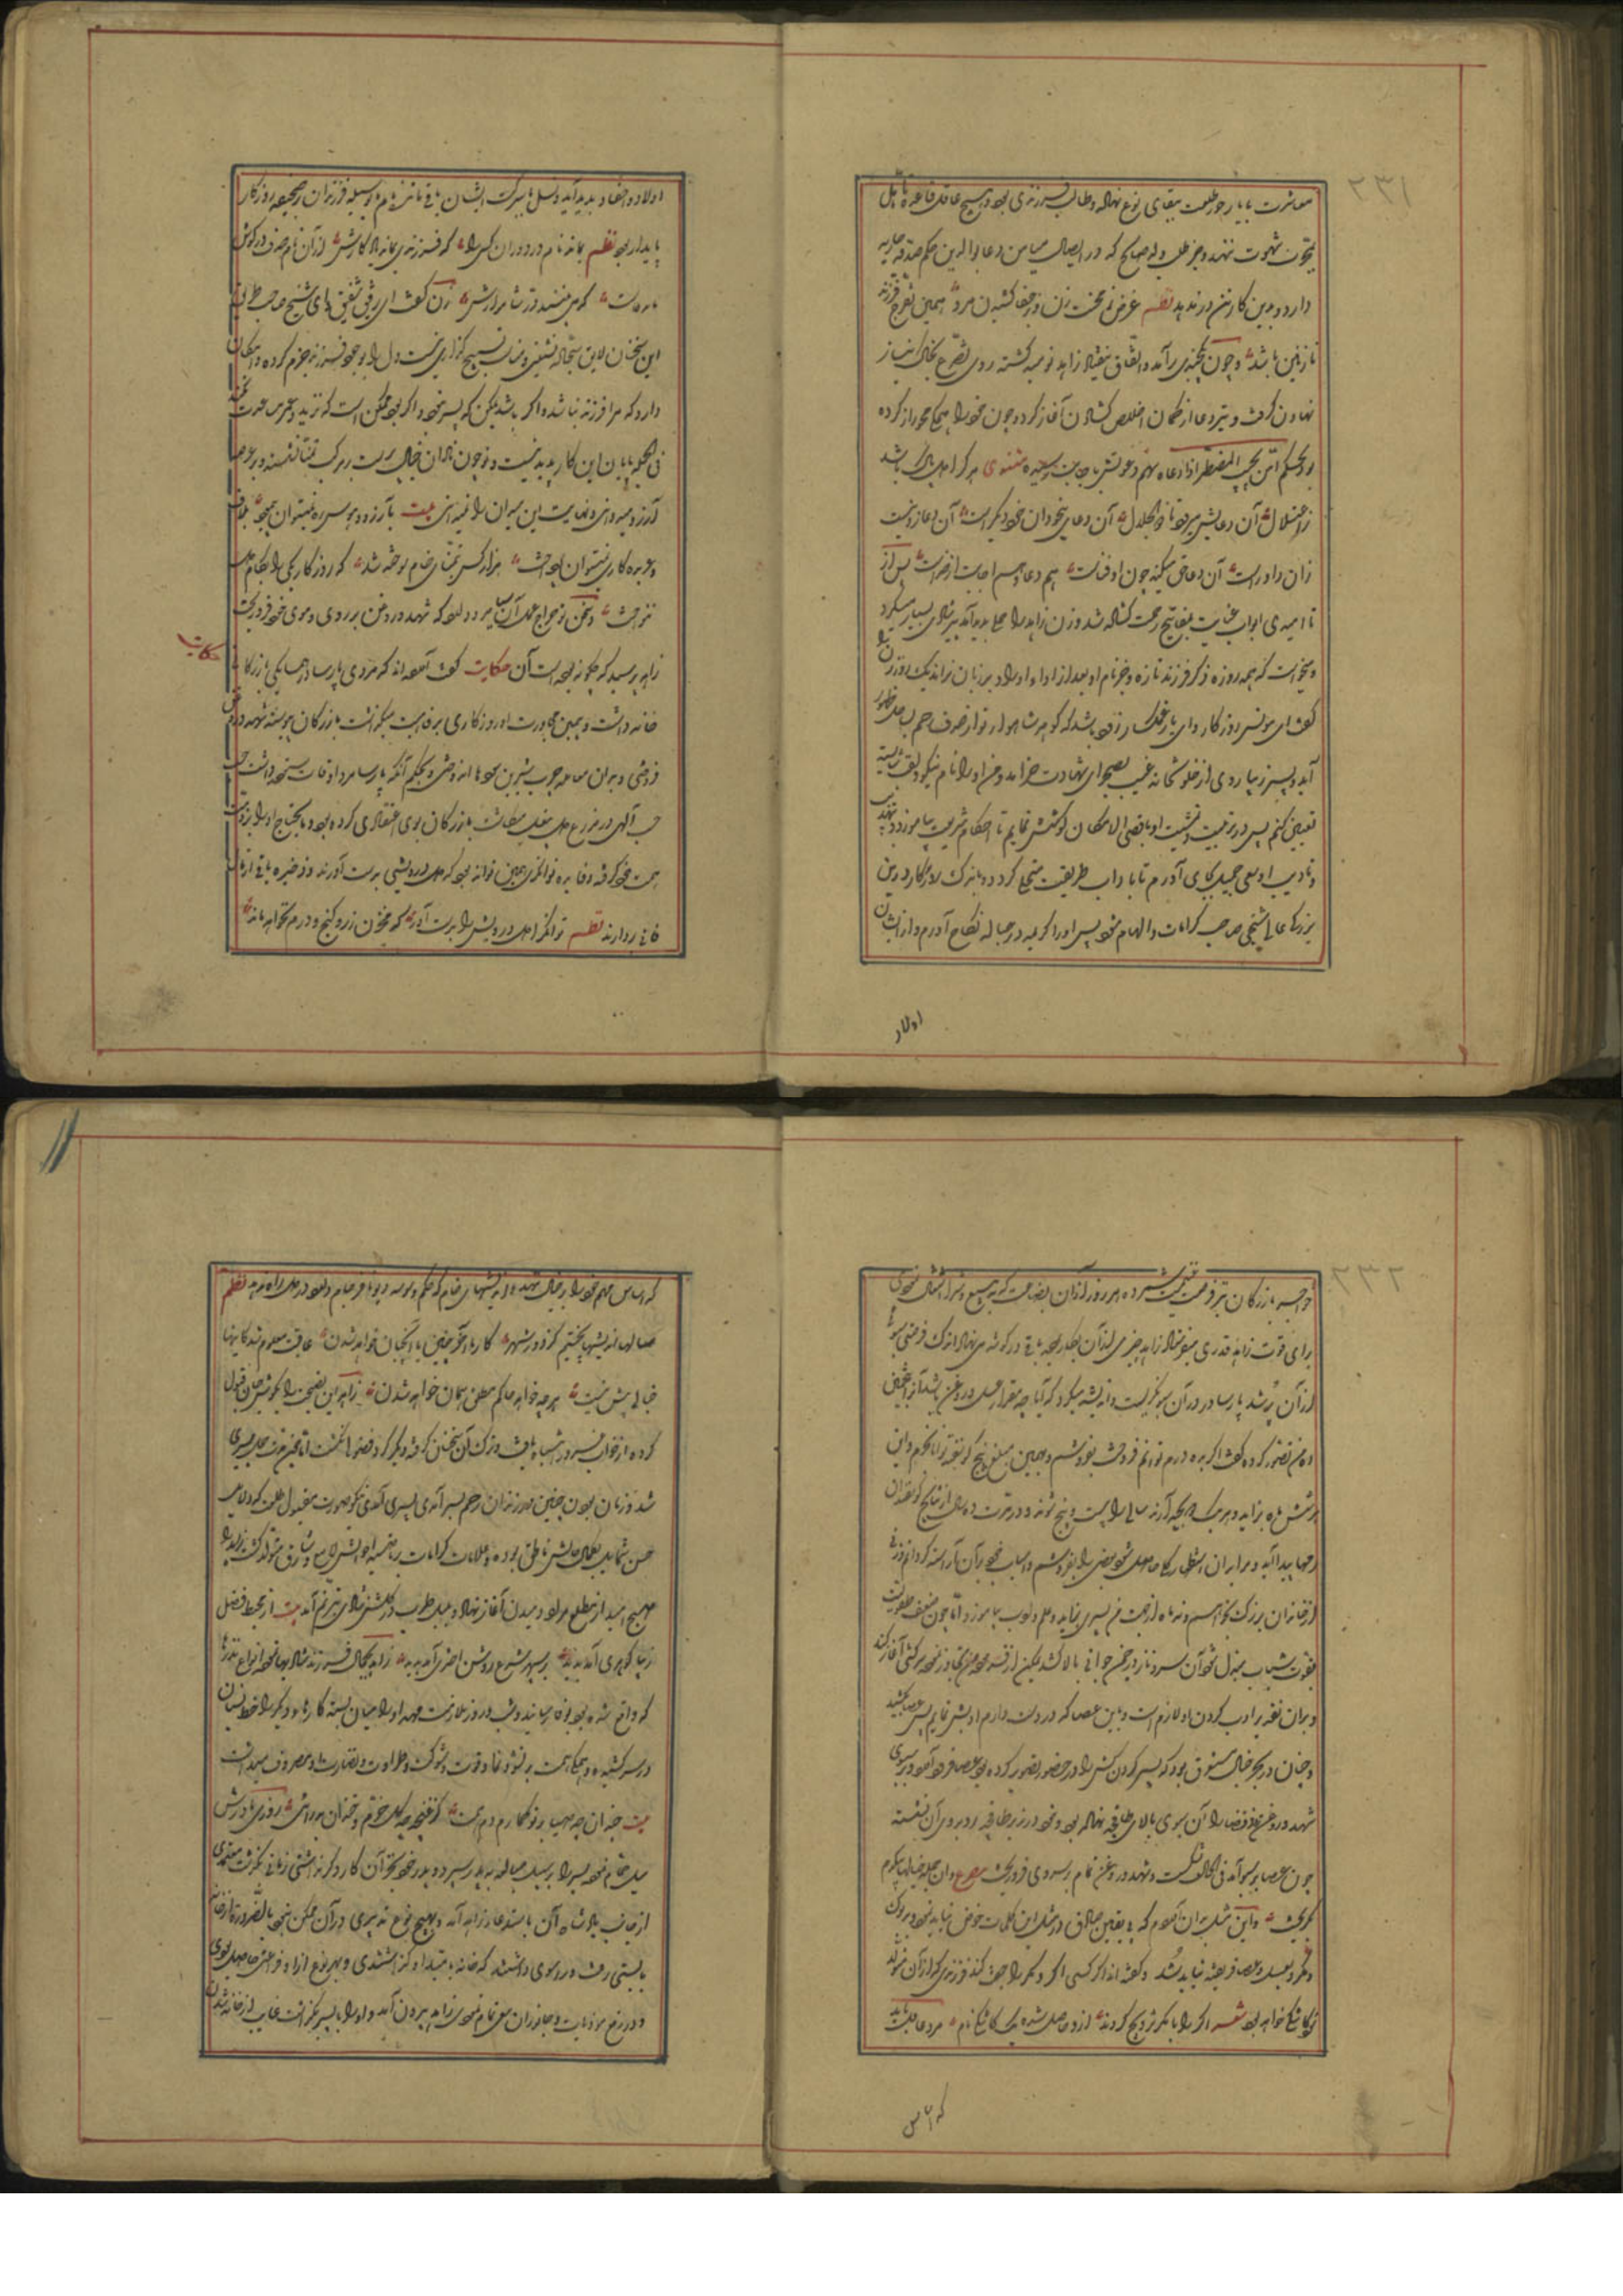 ۲۳۱
معاشرت با یار حور طلعت ببقای نوع نهاده و طالب فرزندی بود و هیچ عاقل قاعده تأهل
شهوت ننهد و جز طلب ولد صالح که در ایصال میامن دعا بوالدین حکم صدقه جاریه
دارد و بدین کار تن در ندهد نظم غرض ز صحبت زن وز جفا کشیدن مرد همین تفرج فرزند
نازنین باشد و چون چندی برآمد و اتفاق نیفتاد زاهد نومید گشته روی تضرع بخاک نیاز
نهادن گرفت و تیر دعا از کمان اخلاص گشادن آغاز کرد و چون خود را همگی محو راز کرده
بود بحکم امّن یجیب المضطر اذا دعاه سهم دعوتش باجابت رسید مثنوی هر کرا دل پاک باشد
ز اعتلال آن دعایش میرود تا ذوالجلال آن دعای بیخودان خود دیگر است آن دعا زو نیست
زان داور است آن دعا حق میکند چون او فناست هم دعا و هم اجابت از خداست پس از
نا امیدی ابواب عنایت بمفاتیح رحمت گشاده شد و زن زاهد را حملی پدید آمد پیر شادی بسیار میکرد
و میخواست که همه روزه ذکر فرزند تازه و جز نام او بعد از ادای اوراد بر زبان نراند یک روز زن را
گفت ای مونس روزگار و ای یار غمگسار زود باشد که گوهر شاهوار تو از صدف رحم بساحل ظهور
آید و پسر زیبا روی از خلوتخانه غیب بصحرای شهادت خرامد و من او را نام نیکو و لقب شایسته
تعیین کنم پس در تربیت و تمشیت او باقصی الامکان کوشش نمایم تا احکام شریعت بیاموزد و در تهذیب
و تأدیب او سعی جمیل بجای آورم تا باداب طریقت متحلی گردد و باندک روزگار در دین
بزرگی عالی شیخی صاحب کرامات و الهام شود پس او را کریمه در حباله نکاح آورم و از ایشان
اولاد
اولاد و احفاد پدید آید و نسل ما ببرکت ایشان باقی ماند و نام ما بوسیله فرزندان بر صحیفه روزگار
پایدار بود نظم بماند نام در دوران کسی را که فرزندی بماند یادگارش از آن نام صدف در گوش
مانده است که می‌بینند در شاهوارش زن گفت ای رفیق شفیق و ای شیخ صاحب طریق
این سخنان لایق سجاده نشینی و مناسب تسبیح گزاری نیست اول بوجود فرزند جزم کرده و امکان
دارد که مرا فرزند نباشد و اگر باشد یمکن که پسر نبود و اگر بود ممکن است که نزید و عمرش مدت نکند
فی الجمله پایان این کار پدید نیست و تو چون نادان خیال پرست بر مرکب تمنا نشسته و در عرصه
آرزو میروی و نهایت این میدان را نمیدانی بیت بآرزو و هوس ره نمیتوان پیمود بلاف
و عربده کاری نمیتوان پرداخت هزار کس بتمنای خام سوخته شد که روزگار یکی را بکام دل
ننواخت و سخن تو مزاج آن پارسا مرد دارد که شهد و روغن بر روی و موی خود فرو ریخت
زاهد پرسید که چگونه بوده است آن حکایت گفت آورده‌اند که مردی پارسا در همسایگی بازرگانی
حکایت
خانه داشت و بیمن مجاورت او روزگاری برفاهیت میگذاشت بازرگان پیوسته شهد و روغن
فروختی و بدان معامله چرب شیرین سودها اندوختی و بحکم آنکه پارسا مرد اوقات ستوده داشت
حب الهی در مزرع دل بیغل میکاشت بازرگان بوی اعتقادی کرده بود و مایحتاج او را بر ذمت
همت خود گرفته و فایده توانگری همین تواند بود که دل درویشی بدست آورند و ذخیره باقی از مال
فانی بردارند نظم توانگرا دل درویش را بدست آور که مخزن زر و گنج و درم نخواهد ماند
۲۳۲
خواجه بازرگان نیز فرصت غنیمت شمرده هر روز از آن بضاعت که به بیع و شرای آن اشتغال نمودی
برای قوت زاهد قدری میفرستاد زاهد چیزی از آن بکار بردی و باقی در گوشه می‌نهاد اندک فرصتی سبوئی
از آن پر شد پارسا روزی در آن سبو نگریست و اندیشه میکرد که آیا چه مقدار عسل و روغن باشد آخر بتخمین
ده من تصور کرده گفت اگر به ده درم توانم فروخت بفروشم و بهمین مبلغ پنج گوسفند بخرم و این
هر شش ماه بزاید و هر یک دو بچه آرند سالی را بیست و پنج شوند و در مدت ده سال از نتایج گوسفندان
رمها پیدا آید و مرا بدان استظهاری تمام حاصل شود بعضی را بفروشم و اسباب خود بدان آراسته گردانم و زنی
از خاندان بزرگ بخواهم و نه ماه را جهت من پسری بزاید و علم و ادب بیاموزد اما چون ضعف طفولیت
بقوت شباب مبدل شود آن سرو ناز در چمن جوانی بالا کشد یمکن از قدم من تجاوز نموده سرکشی آغاز کند
و بران تقدیر ادب کردن او لازم است و باین عصا که در دست دارم ادبش نمایم پس عصا بکشید
و چنان در بحر خیال مستغرق بود که پسر گردن کش را در حضور تصور کرده عصا فرود آورد و بر سبوی
شهد و روغن زد قضا را آن سبوی بالای طاقچه نهاده بود و خود در زیر طاقچه روبروی آن نشسته
چون عصا بر سبو آمد فی الحال شکست و شهد و روغن تمام بر سر و روی فرو ریخت مصرع وان جمله خیالها بیکدم
بگریخت و این مثل بدان آوردم که بی یقین صادق در امثال این کلمات خوض نباید نمود و بدوک
و مگر و لعل و عسی فریفته نباید شد و گفته‌اند اگر کسی اگر و مگر را جفت کند فرزندی که از آن متولد
کاشکی خواهد بود شعر اگر را با مگر تزویج کردند ازو حاصل شد یک کاشکی نام مرد عاقل باید
که اساس
که اساس مهم خود را بر خیال ننهد و اندیشهای خام که حکم وسوسه دیو نافرجام دارد در دل راه ندهد نظم
سالها اندیشها پختیم کز دور سپهر کار ما آخر چنین یا آنچنان خواهد شدن عاقبت معلوم شد کاینها
خیالی بیش نیست هرچه خواهد حاکم مطلق همان خواهد شدن زاهد این نصیحت را بگوش جان قبول
کرده از خواب غرور انتباه یافت و ترک آن سخنان گرفته دیگر گرد فضولی نگشت تا چون مدت حمل سپری
شد و زمان سجون چنین در زندان رحم بسر آمد پسری آمدی نیکو صورت مقبول طلعت که دلایل
حسن شمایل بکمال حالش ناطق بوده و علامات کرامات بر ناصیه احوالش لایح و شارق متولد گشت زاهد را
صبح امید از مطلع مراد دمیدن آغاز نهاد و بلبل طرب در گلشن شادی بترنم آمد بیت از محیط فضل
زیبا گوهری آمد پدید بر سپهر شرع روشن اختری آمد پدید زاهد بجمال فرزند شادیها نموده انواع نذرها
که واقع شده بود بوفا رسانید و شب و روز بملازمت مهد او را میان بسته کارهای دیگر را خط نسیان
در سر کشید و همگی همت بر نشو و نما و قوت و شوکت و طراوت و نضارت او مصروف میداشت
بیت چند ان چه صبا بر تو گمارم دم همت کز غنچه چو گل خرم و خندان بدر آئی روزی مادرش
میل حمام نموده پسر را بر سبیل مبالغه بپدر سپرد و پدر خود بجز آن کار دیگر نداشتی زمانی بگذشت معتمدی
از جانب پادشاه آن باستدعاء زاهد آمد و بهیچ نوع تدبیری در آن ممکن نبود بالضرورة از خانه
بایستی رفت و راسوی داشتند که خانه باعتماد او گذاشتندی و بهر نوع از او فراغتی حاصل بودی
و در دفع موذیات و جانوران سعی تمام نمودی زاهد بیرون آمد و او را با پسر بگذاشت غایب از خانه شدن